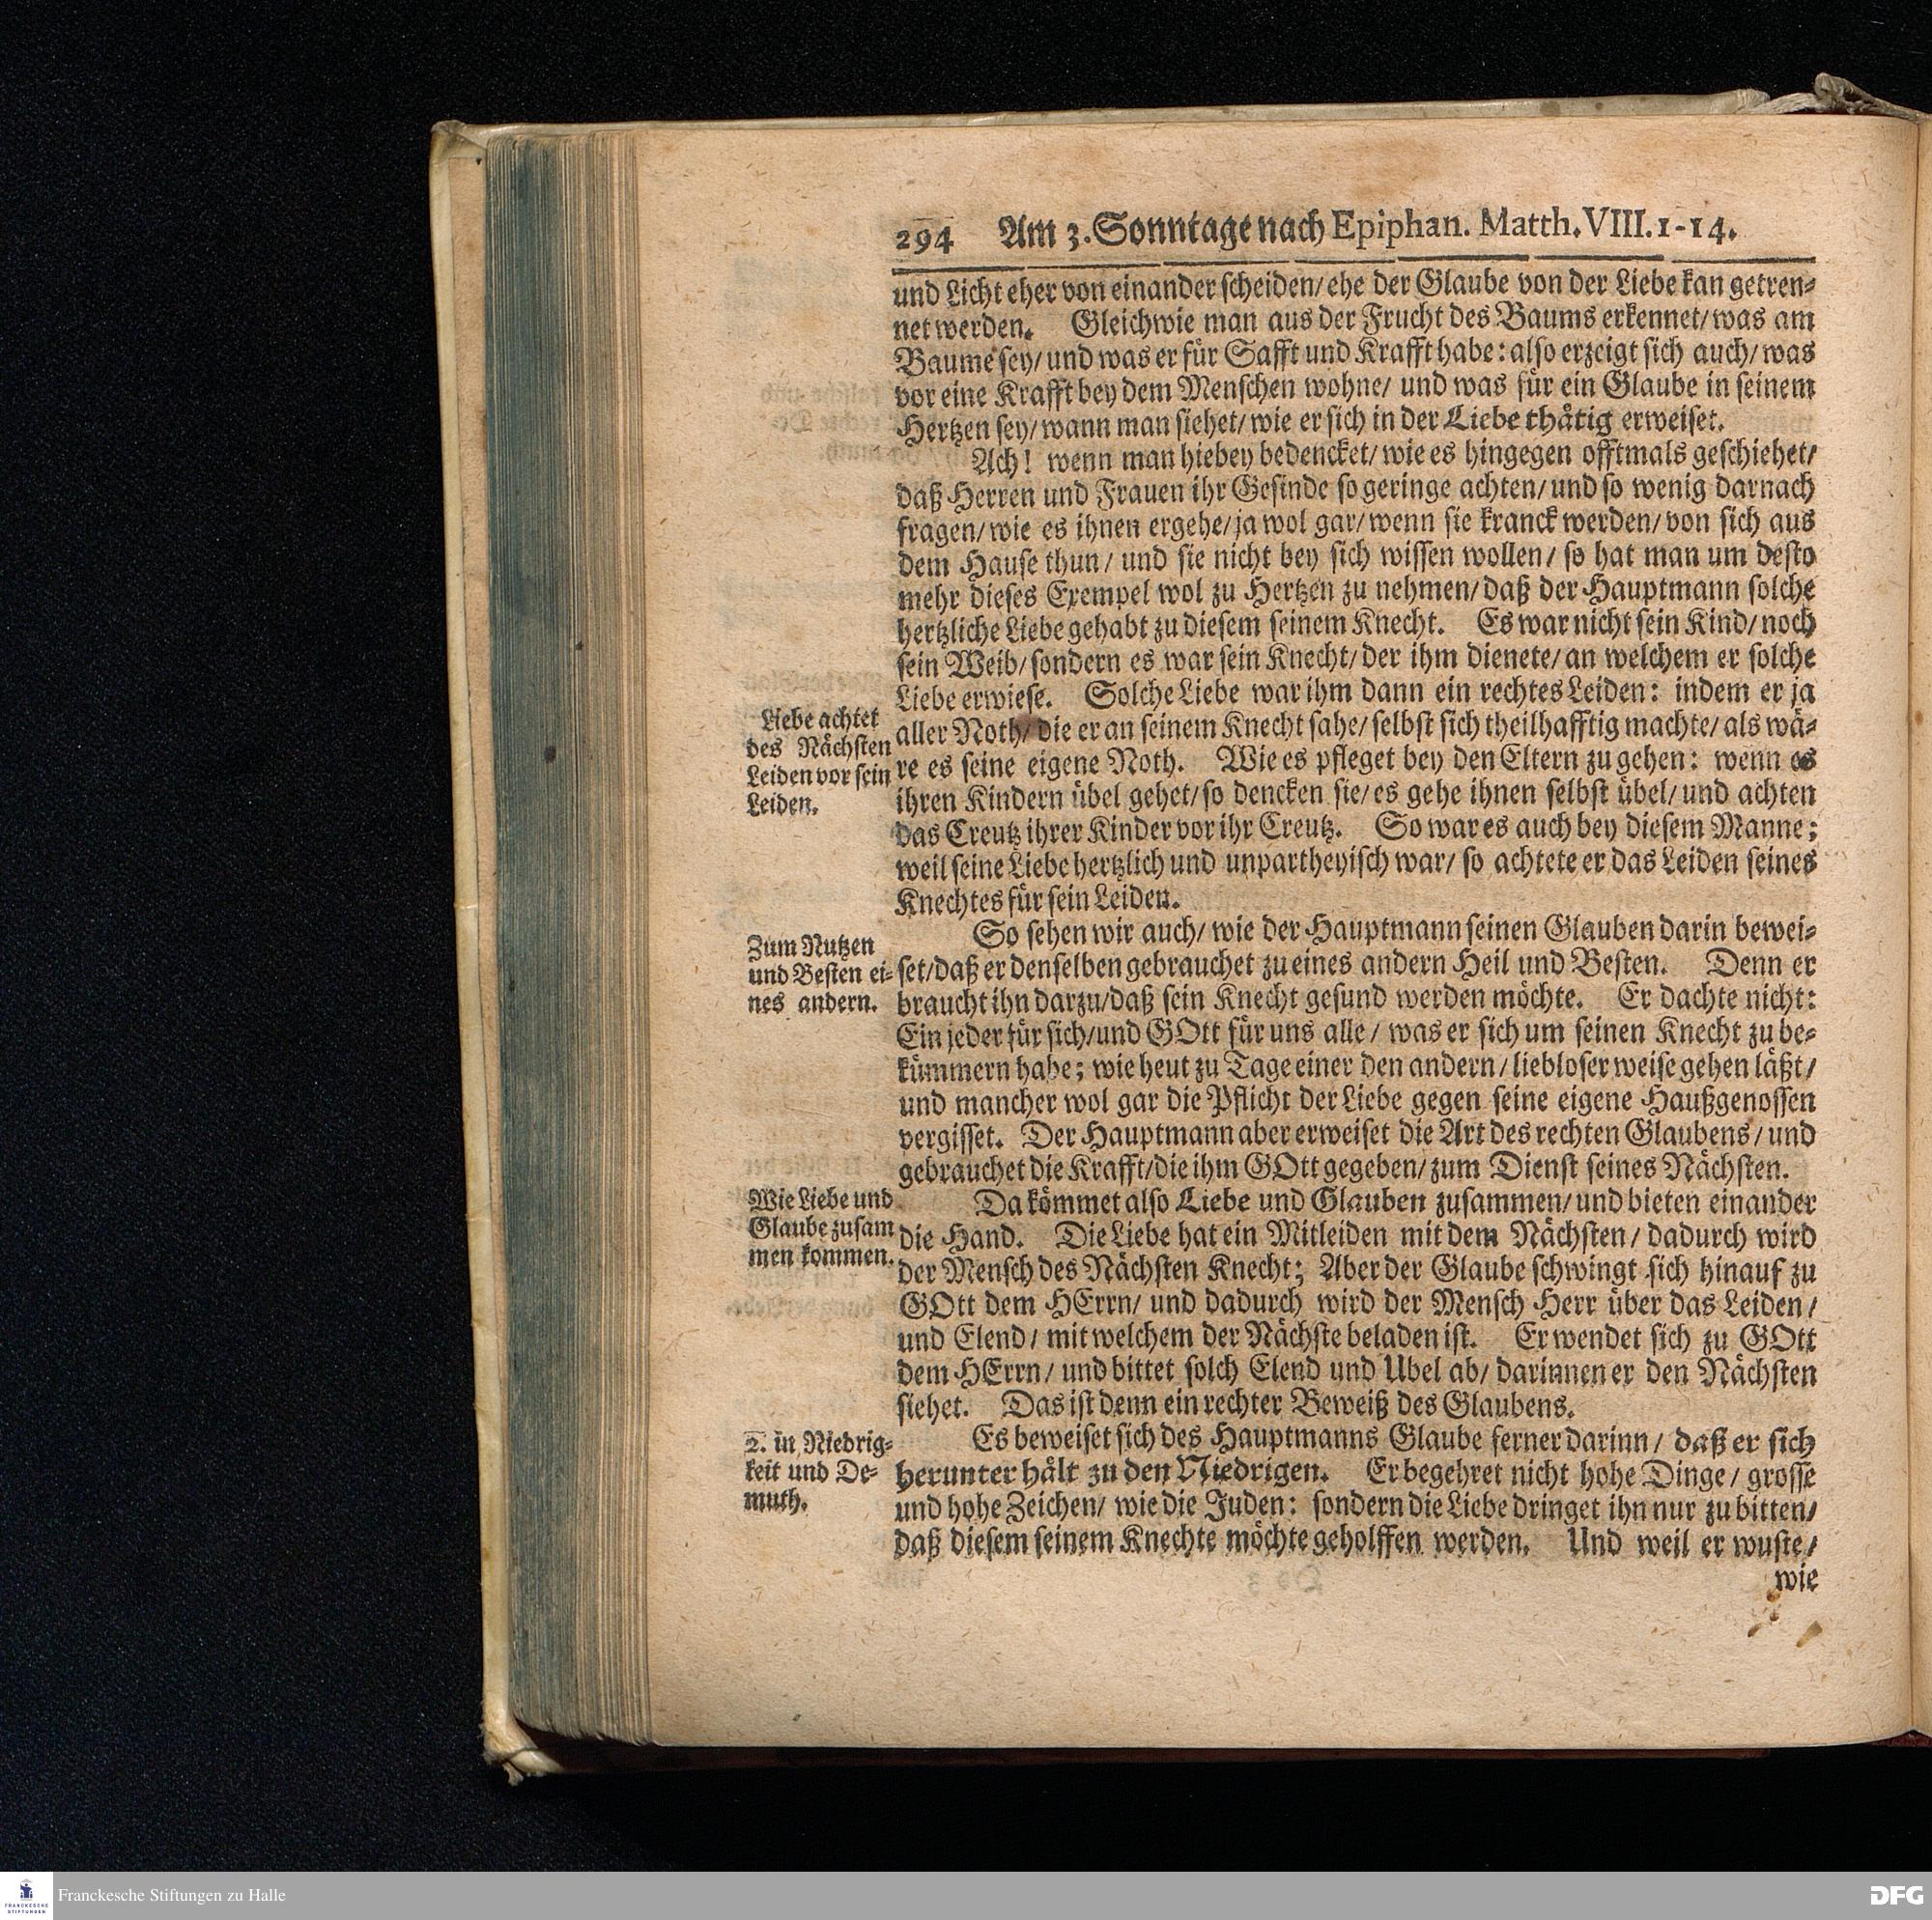 294 Am 3. Sonntage nach Epiphan. Matth. VIII. 1-14.
und Licht eher von einander scheiden/ ehe der Glaube von der Liebe kan getren-
net werden. Gleichwie man aus der Frucht des Baums erkennet/ was am
Baume sey/ und was er für Safft und Krafft habe: also erzeigt sich auch/ was
vor eine Krafft bey dem Menschen wohne/ und was für ein Glaube in seinem
Hertzen sey/ wann man siehet/ wie er sich in der Liebe thätig erweiset.
Ach! wenn man hiebey bedencket/ wie es hingegen offtmals geschiehet/
daß Herren und Frauen ihr Gesinde so geringe achten/ und so wenig darnach
fragen/ wie es ihnen ergehe/ ja wol gar/ wenn sie kranck werden/ von sich aus
dem Hause thun/ und sie nicht bey sich wissen wollen/ so hat man um desto
mehr dieses Exempel wol zu Hertzen zu nehmen/ daß der Hauptmann solche
hertzliche Liebe gehabt zu diesem seinem Knecht. Es war nicht sein Kind/ noch
sein Weib/ sondern es war sein Knecht/ der ihm dienete/ an welchem er solche
Liebe erwiese. Solche Liebe war ihm dann ein rechtes Leiden: indem er ja
aller Noth/ die er an seinem Knecht sahe/ selbst sich theilhafftig machte/ als wä-
re es seine eigene Noth. Wie es pfleget bey den Eltern zu gehen: wenn es
ihren Kindern übel gehet/ so dencken sie/ es gehe ihnen selbst übel/ und achten
das Creutz ihrer Kinder vor ihr Creutz. So war es auch bey diesem Manne;
weil seine Liebe hertzlich und unpartheyisch war/ so achtete er das Leiden seines
Knechtes für sein Leiden.
Liebe achtet
des Nächsten
Leiden vor sein
Leiden.
So sehen wir auch/ wie der Hauptmann seinen Glauben darin bewei-
set/ daß er denselben gebrauchet zu eines andern Heil und Besten. Denn er
braucht ihn darzu/ daß sein Knecht gesund werden möchte. Er dachte nicht:
Ein jeder für sich/ und GOtt für uns alle/ was er sich um seinen Knecht zu be-
kümmern habe; wie heut zu Tage einer den andern/ liebloser weise gehen läßt/
und mancher wol gar die Pflicht der Liebe gegen seine eigene Haußgenossen
vergisset. Der Hauptmann aber erweiset die Art des rechten Glaubens/ und
gebrauchet die Krafft/ die ihm GOtt gegeben/ zum Dienst seines Nächsten.
Zum Nutzen
und Besten ei-
nes andern.
Da kömmet also Liebe und Glauben zusammen/ und bieten einander
die Hand. Die Liebe hat ein Mitleiden mit dem Nächsten/ dadurch wird
der Mensch des Nächsten Knecht; Aber der Glaube schwingt sich hinauf zu
GOtt dem HErrn/ und dadurch wird der Mensch Herr über das Leiden/
und Elend/ mit welchem der Nächste beladen ist. Er wendet sich zu GOtt
dem HErrn/ und bittet solch Elend und Ubel ab/ darinnen er den Nächsten
siehet. Das ist denn ein rechter Beweiß des Glaubens.
Wie Liebe und
Glaube zusam
men kommen.
Es beweiset sich des Hauptmanns Glaube ferner darinn/ daß er sich
herunter hält zu den Niedrigen. Er begehret nicht hohe Dinge/ grosse
und hohe Zeichen/ wie die Juden: sondern die Liebe dringet ihn nur zu bitten/
daß diesem seinem Knechte möchte geholffen werden. Und weil er wuste/
2. in Niedrig-
keit und De-
muth.
wie
Franckesche Stiftungen zu Halle
FRANCKESCHE
STIFTUNGEN
DFG